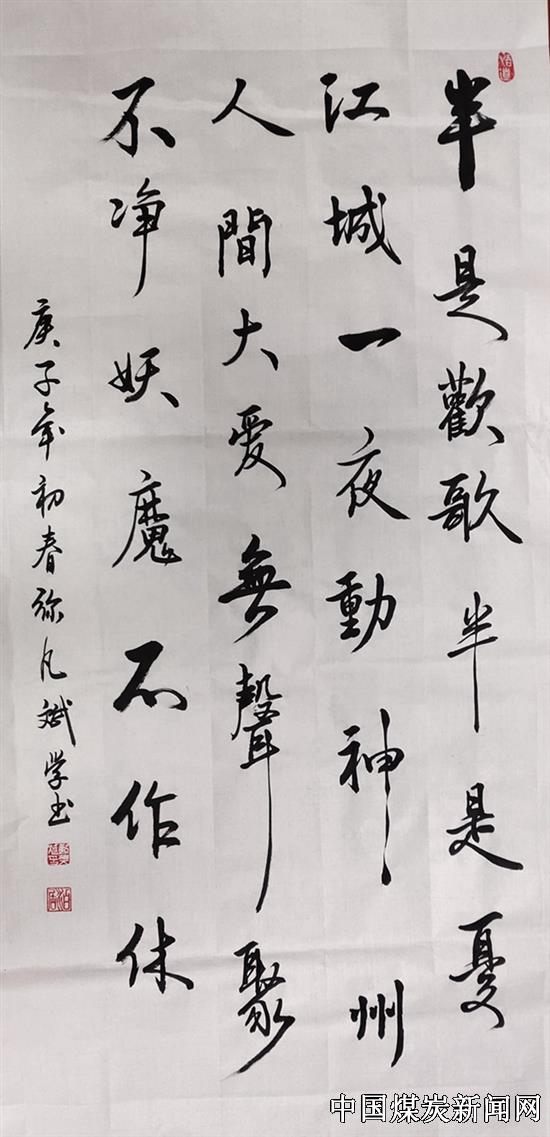 半是歡歌半是憂
江城一夜動神州
人間大爱無聲聚
不净妖魔不作休
庚子年初春弥凡斌学书
悟道
中国煤炭新闻网